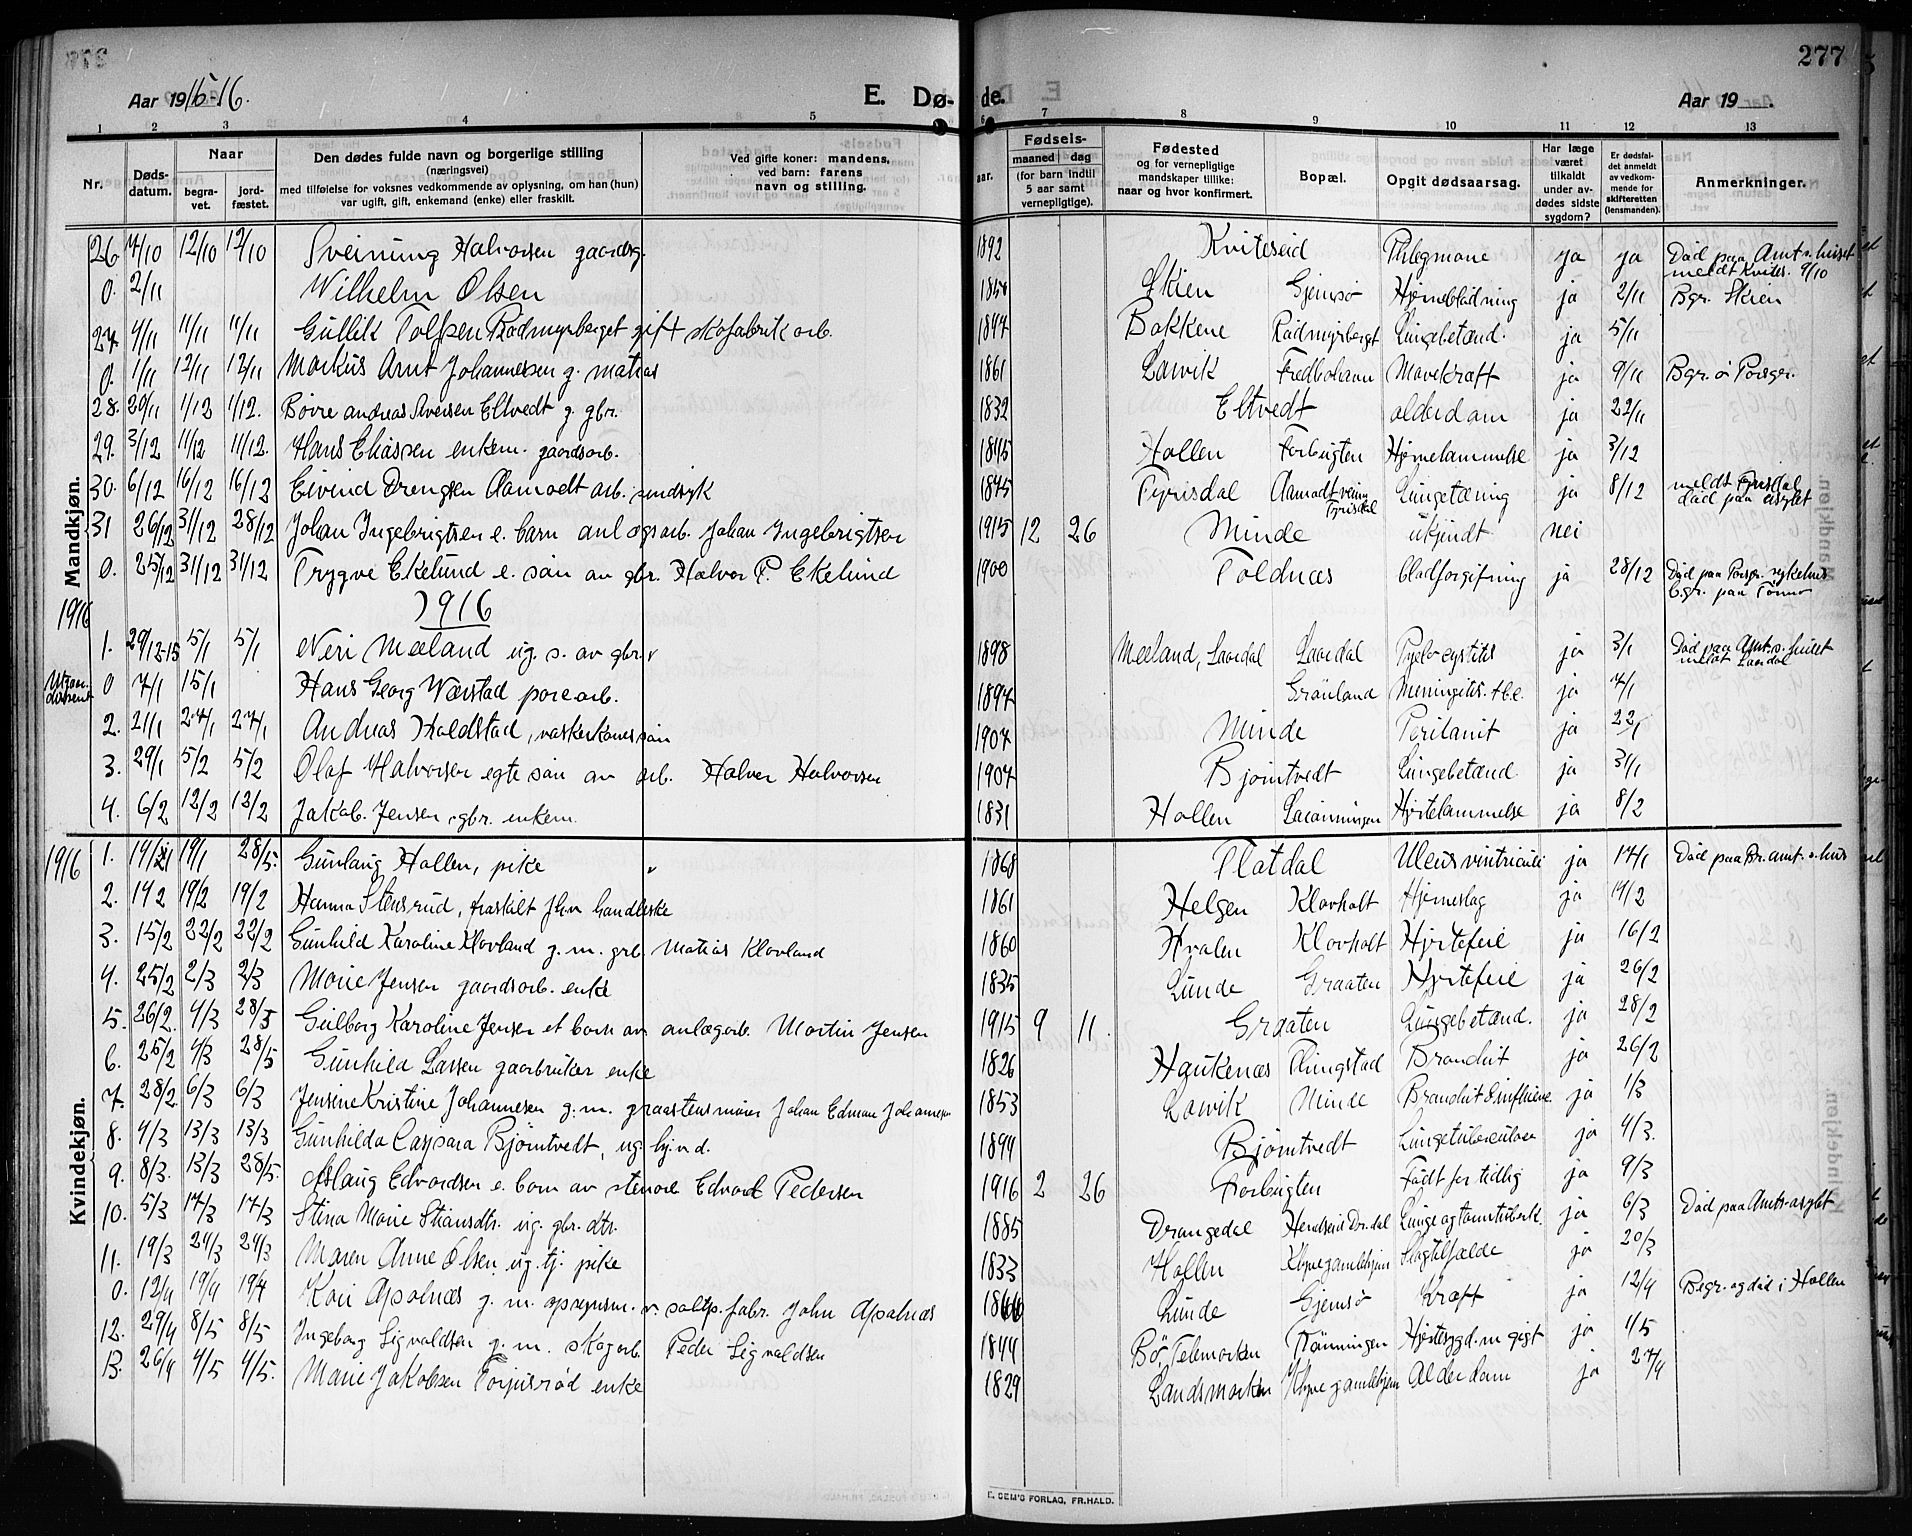 277
Aar 1915-16. E. Dø- de. Aar 19 .
1 2 3 4 5 6 7 8 9 10 11 12 13
Nr. Døds-datum. Naar begra-vet. jord-fæstet. Den dødes fulde navn og borgerlige stilling (næringsvei) med tilføielse for voksnes vedkommende av oplysning, om han (hun) var ugift, gift, enkemand (enke) eller fraskilt. Ved gifte koner: mandens, ved barn: farens navn og stilling. aar. Fødsels- maaned dag (for barn indtil 5 aar samt vernepligtige). Fødested og for vernepligtige mandskaper tillike: naar og hvor konfirmert. Bopæl. Opgit dødsaarsag. Har læge været tilkaldt under av-dødes sidste sygdom? Er dødsfal-det anmeldt av vedkom-mende for skifteretten (lensmanden). Anmerkninger.
Mandkjøn.
26 7/10 12/10 12/10 Sveinung Halvorsen gaardsg. 1892 Kviteseid Phlegmone ja ja Død paa Amt.s.huset meldt Kvites. 9/10
0. 2/11 Wilhelm Olsen Skien Gjemsø Hjerneblødning ja 2/11 Bgr. Skien
27 4/11 11/11 11/11 Gullik Tolfsen Rødmyrberget gift skofabrik arb. 1847 Bakkene Rødmyrberget Lungebetænd. ja 5/11
0. 1/11 12/11 12/11 Markus Amt Johannessen g. matros 1861 Larvik Fredbohavn Mavekræft ja 9/11 Bgr. i Porsgr.
28. 20/11 1/12 1/12. Børre Andreas Iversen Eltvedt g. gbr. 1832 Eltvedt alderdom ja 22/11
29. 3/12 11/12 11/12. Hans Eliassen enkem. gaardsarb. 1845 Hollen Forbugten Hjertelammelse ja 3/12
30. 6/12 16/12 16/12 Eivind Drengsen Aamodt arb. sindsyk 1845 Fyrisdal Aamodt Fyrisdal Lungetæring ja 8/12 meldt Fyrisdal død paa asylet
31 26/12 31/12 28/12 Johan Ingebrigtsen e. barn anlægsarb. Johan Ingebrigtsen 1915 12 26 Minde ukjendt nei
0. 25/12 31/12 31/12 Trygve Ekelund e. søn av gbr. Halvor P. Ekelund 1900 Foldnæs Blodforgiftning ja 28/12 Død paa Porsgr. sykehus
1916 1916
1. 29/12-15 5/1 5/1 Neri Meeland ug. s. av gbr. 1898 Meeland, Laardal Laardal Pyelocystitis ja 3/1 Død paa Amt.s.huset meldt Laardal
0 7/1 15/1 Hans Georg Værstad porc.arb. 1897 Grønland Meningitis tbc. ja 7/1
2. 21/1 27/1 27/1 Andreas Kroldstad, vaskerkones søn 1907 Minde Peritonit ja 22/1
3. 29/1 5/2 5/2 Olaf Halvorsen egte søn av arb. Halvor Halvorsen 1907 Bjørntvedt Lungebetænd. ja 31/1
4. 6/2 12/2 12/2 Jakob Jensen, gbr. enkem. 1831 Hollen Hjertelammelse ja 8/2
1916
Kvindekjøn.
1. 14/1 19/1 28/5. Gunlaug Hollen, pike 1868 Flatdal Ulcus ventriculi ja 17/1 Død paa Br. amt.s.hus
2. 14/2 19/2 19/2 Hanna Stensrud, fraskilt handlerske 1861 Helgen Klovholt Hjerneslag ja 14/2
3. 15/2 22/2 22/2 Gunhild Karoline Klovland g. m. grb. Matias Klovland 1860 Hvalen Klovholt Hjertefeil ja 16/2
4. 25/2 2/3 2/3 Marie Jensen gaardsarb. enke 1835 Lunde Graaten Hjertefeil ja 26/2
5. 26/2. 4/3 28/5 Gulborg Karoline Jensen et barn av anlægarb. Martin Jensen 1915 9 11. Graaten Lungebetænd. ja 28/2
6. 25/2 4/3 28/5 Gunhild Larsen gaarbruker enke 1826 Haukenæs Ringstad Bronchit ja 26/2
7. 28/2. 6/3 6/3 Jensine Kristine Johannesen g. m. graastensmurer Johan Edman Johannesen 1853 Larvik Minde Bronchit & influensa ja 1/3
8. 4/3 13/3 13/3 Gunhilda Caspara Bjørntvedt, ug. 1894 Bjørntvedt Lungetuberculose ja 4/3.
9. 8/3. 13/3 28/5. Aslaug Edvardsen e. barn av stenarb. Edvard Pedersen 1916 2 26 Forbugten Født for tidlig ja 9/3
10. 5/3 17/3 17/3 Stina Marie Stiansdtr. ug. gbr. dtr. 1885 Drangedal Henseid Dr.dal Lunge og tarmtuberk. ja 6/3 Død paa Amts.asylet
11. 19/3 24/3 24/3 Maren Anne Olsen, ug. tj. pike 1833 Hollen Klyve gamlehjem Slagtilfælde ja 20/3
0. 12/4 19/4 19/4 Kari Apalnæs g. m. opsynsm. v. saltp. fabr. John Apalnæs Lunde Gjemsø Kræft ja 12/4 Begr. og død i Hollen
12. 29/4 8/5 8/5 Ingeborg Sigvaldsen g. m. skogarb. Peder Sigvaldsen 1844 Bø, Telemarken Rønningen Hjertesygd. m. gigt ja 1/5
13. 26/4 4/5 4/5. Marie Jakobsen Torjusrød enke 1829 Landsmarken Klyve gamlehjem Alderdom ja 27/4
E. SEM'S FORLAG, FR.HALD.